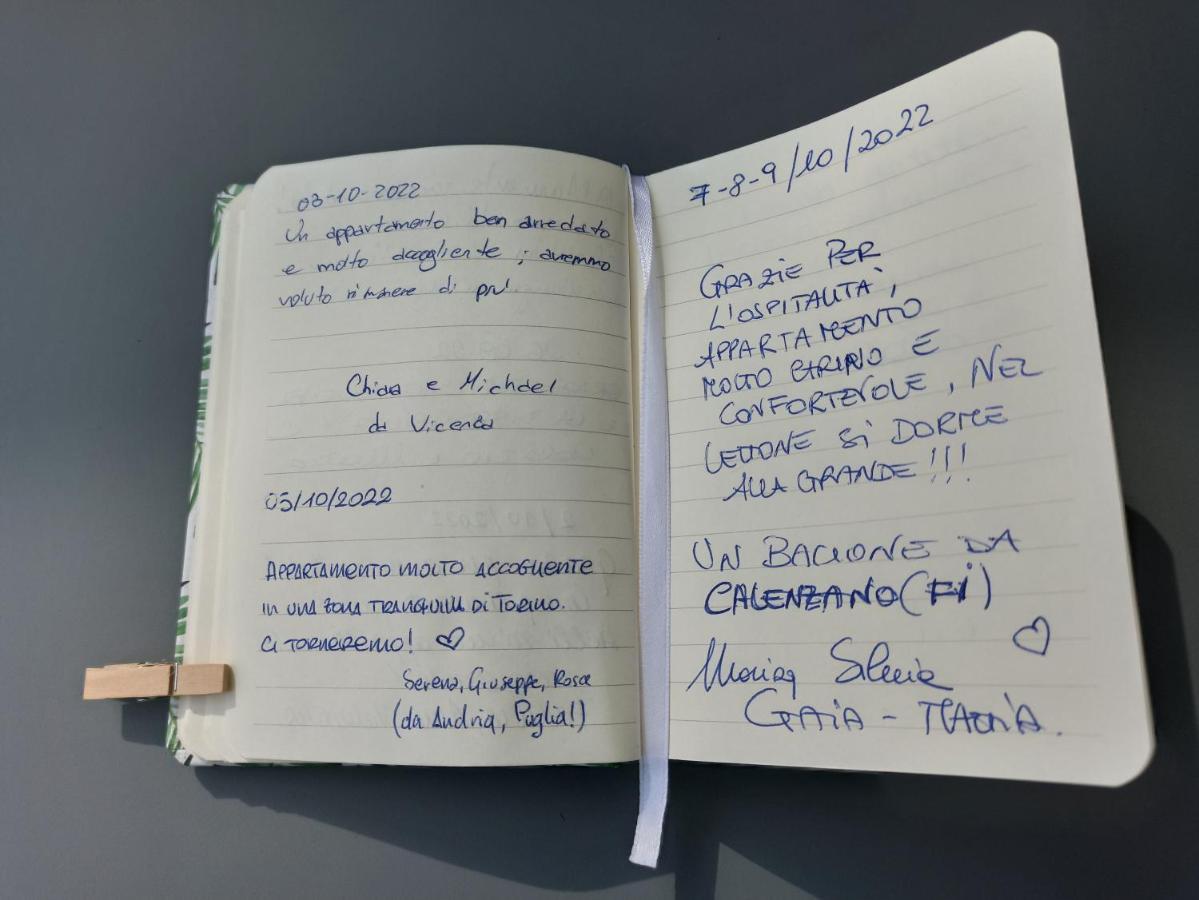 03-10-2022
Un appartamento ben arredato
e molto accogliente ; avremmo
voluto rimanere di più
Chiara e Michael
da Vicenza
05/10/2022
APPARTAMENTO MOLTO ACCOGLIENTE
IN UNA ZONA TRANQUILLA DI TORINO.
CI TORNEREMO! ♡
Serena, Giuseppe, Rosa
(da Andria, Puglia!)
7-8-9/10/2022
GRAZIE PER
L'OSPITALITÀ,
APPARTAMENTO
MOLTO CARINO E
CONFORTEVOLE, NEL
LETTONE SI DORME
ALLA GRANDE!!!
UN BACIONE DA
CALENZANO (FI)
♡
Maria Silvia
GAIA -